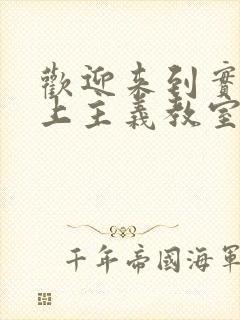 歡迎来到實
上主義教室
千年帝國海軍